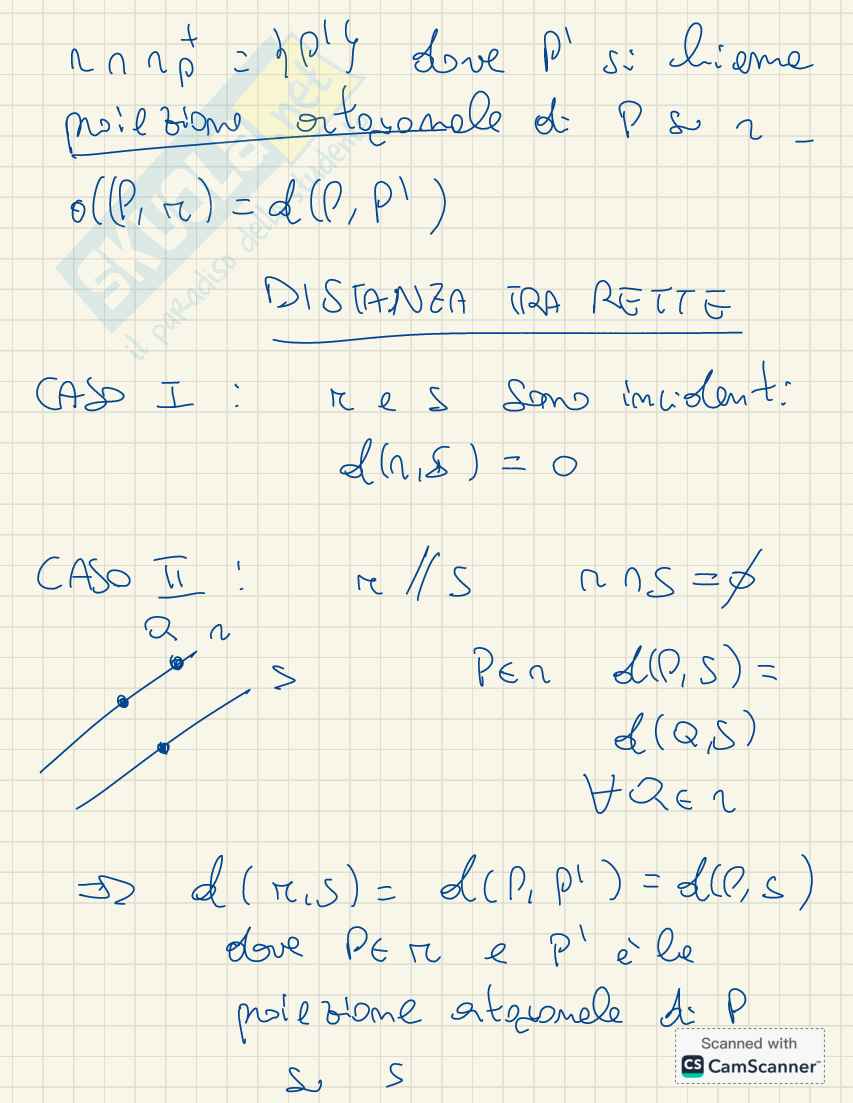 r ∩ r_P^⊥ = {P'} dove P' si chiama
proiezione ortogonale di P su r _
d(P, r) = d(P, P')
DISTANZA TRA RETTE
CASO I : r e s sono incidenti
d(r, s) = 0
CASO II : r // s r ∩ s = ∅
Q r
s
P ∈ r d(P, s) =
d(Q, s)
∀ Q ∈ r
⇒ d(r, s) = d(P, P') = d(P, s)
dove P ∈ r e P' è la
proiezione ortogonale di P
su s
SKUOLA.net
il paradiso dello studente
Scanned with
CS CamScanner